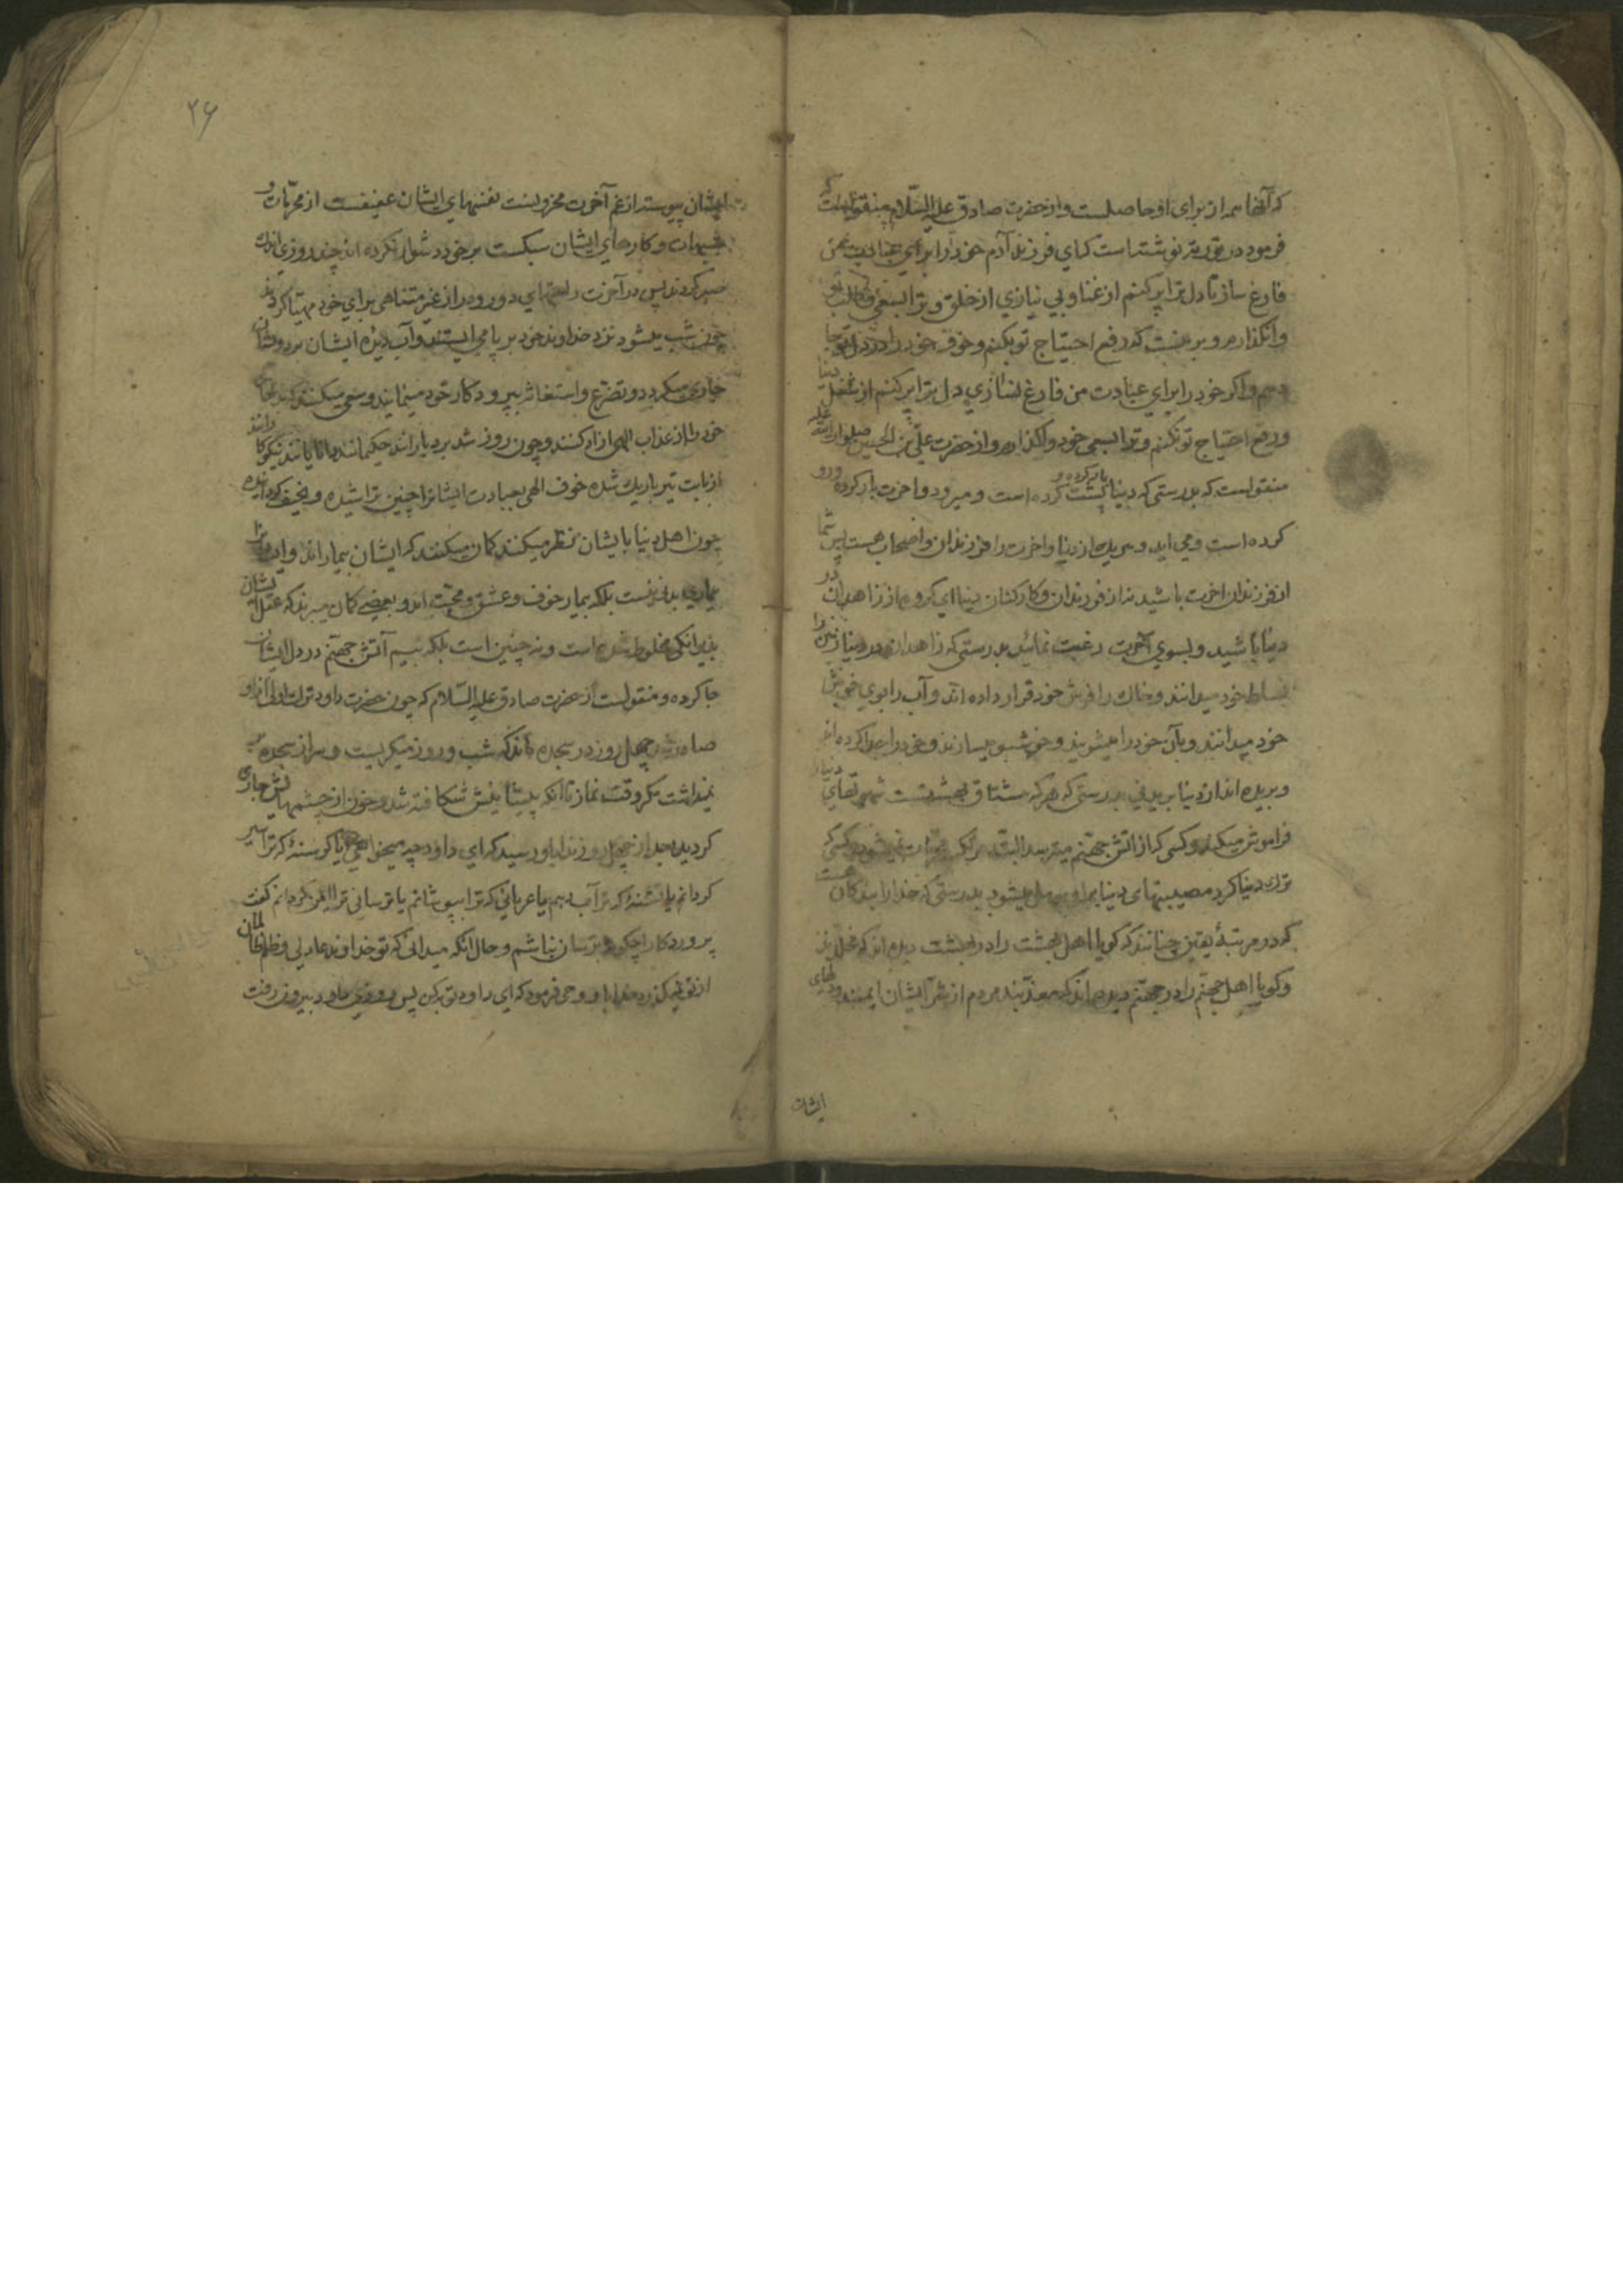 که آنها همه از برای او حاصلست و از حضرت صادق علیه السّلام منقولست که
فرمود در توریة نوشته است که ای فرزند آدم خود را برای عبادت من
فارغ ساز تا دل ترا پر کنم از غنا و بی نیازی از خلق و ترا بسعی و طلب تو
وانگذارم و بر منست که رفع احتیاج تو بکنم و خوف خود را در دل تو جا
دهم و اگر خود را برای عبادت من فارغ نسازی دل ترا پر کنم از شغل دنیا
و رفع احتیاج تو نکنم و ترا بسعی خود واگذارم و از حضرت علی بن الحسین صلوات الله علیه
منقولست که بدرستی که دنیا بار کرده و پشت کرده است و میرود و اخرت بار کرده و رو
کرده است و می اید و هریك از دنیا و اخرت را فرزندان و اصحاب هست پس شما
از فرزندان اخرت باشید نه از فرزندان و کارکنان دنیا ای کروه از زاهدان در
دنیا باشید و بسوی اخرت رغبت نمائید بدرستی که زاهدان در دنیا زمین را
بساط خود میدانند و خاك را فرش خود قرار داده اند و آب را بوی خوش
خود میدانند و بآن خود را میشویند و خوشبو میسازند و خود را جدا کرده اند
و بریده اند از دنیا بریدنی بدرستی که هر که مشتاق بهشتست شهوتهای دنیا را
فراموش میکند و کسی که از اتش جهنم میترسد البته مرتکب محرمات نمیشود و کسی که
ترك دنیا کرد مصیبتهای دنیا بر او سهل میشود بدرستی که خدا را بندکان هست
که در مرتبهٔ یقین چنانند که کویا اهل بهشت را در بهشت دیده اند که مخلدند
و کویا اهل جهنم را در جهنم دیده اند که معذبند مردم از شرّ ایشان ایمنند و دلهای
ایشان
۲۶
ایشان پیوسته از غم آخرت محزونست نفسهای ایشان عفیفست از محرّمات و
شبهات و کارهای ایشان سبکست بر خود دشوار نکرده اند چند روزی اندك
صبر کردند پس در آخرت راحتهای دور و دراز غیر متناهی برای خود مهیّا کردند
چون شب میشود نزد خداوند خود بر پا می ایستند و آب دیدهٔ ایشان بر رویشان
جاری میکردد و تضرع و استغاثه بپروردکار خود مینمایند و سعی میکنند که
خود را از عذاب الهی ازاد کنند و چون روز شد بردبارانند حکیمانند دانایانند نیکوکارانند
از بابت تیر باریك شده خوف الهی بعبادت ایشانرا چنین تراشیده و نحیف کردانیده
چون اهل دنیا بایشان نظر میکنند کمان میکنند که ایشان بیمارند و ایشانرا
بیماری بدنی نیست بلکه بیمار خوف و عشق و محبّت اند و بعضی کمان میبرند که عقل ایشان
بدیوانکی مخلوط شده است و نه چنین است بلکه بیم آتش جهنم در دل ایشان
جا کرده و منقولست از حضرت صادق علیه السّلام که چون حضرت داود ترك اولی از او
صادر شد چهل روز در سجده ماند که شب و روز میکریست و سر از سجده بر
نمیداشت مکر وقت نماز تا انکه پیشانیش شکافته شد و خون از چشمهایش جاری
کردید بعد از چهل روز ندا باو رسید که ای داود چه میخواهی آیا کرسنهٔ که ترا سیر
کردانم یا تشنهٔ که ترا آب دهم یا عریانی که ترا بپوشانم یا ترسانی ترا ایمن کردانم کفت
پروردکارا چکونه ترسان نباشم و حال انکه میدانی که تو خداوند عادلی و ظلم ظالمان
از تو نمیکذرد خدا باو وحی فرمود که ای داود توبه کن پس روزی داود بیرون رفت